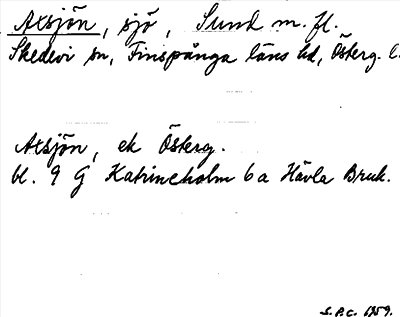 Axsjön, sjö, Sund m. fl.
Skedevi sn, Finspånga läns hd, Österg. l.
Axsjön, ek Österg.
bl. 9 G Katrineholm 6 a Hävla Bruk.
S.P.C. 1959.